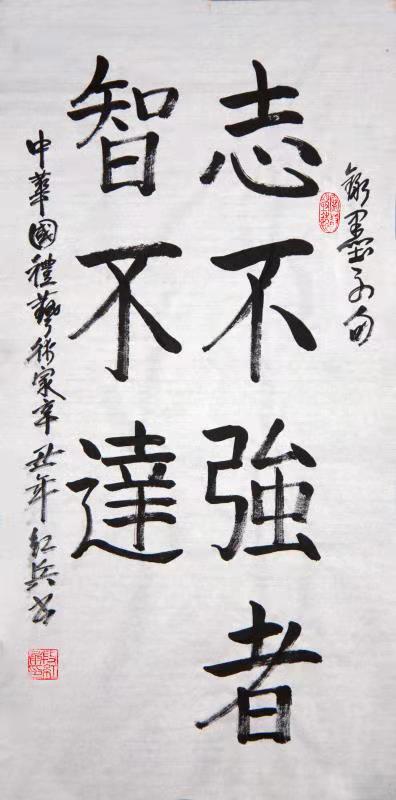 錄墨子句
志不強者
智不達
中華國禮藝術家辛丑年紅兵书